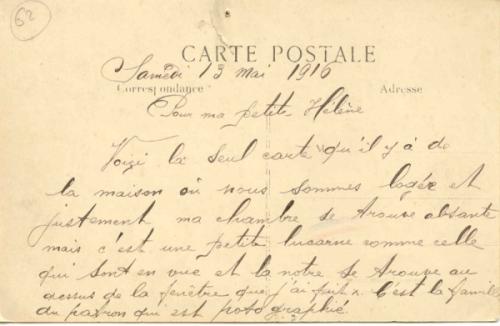 62
CARTE POSTALE
Samedi 13 Mai 1916
Correspondance Adresse
Pour ma petite Hélène
Voizi la seul carte qu'il y à de
la maison où nous sommes logée et
justement ma chambre se trouve absante
mais c'est une petite lucarne comme celle
qui sont en vue et la notre se trouve au
dessus de la fenêtre que j'ai fait x. C'est la famille
du patron qui est potographié.